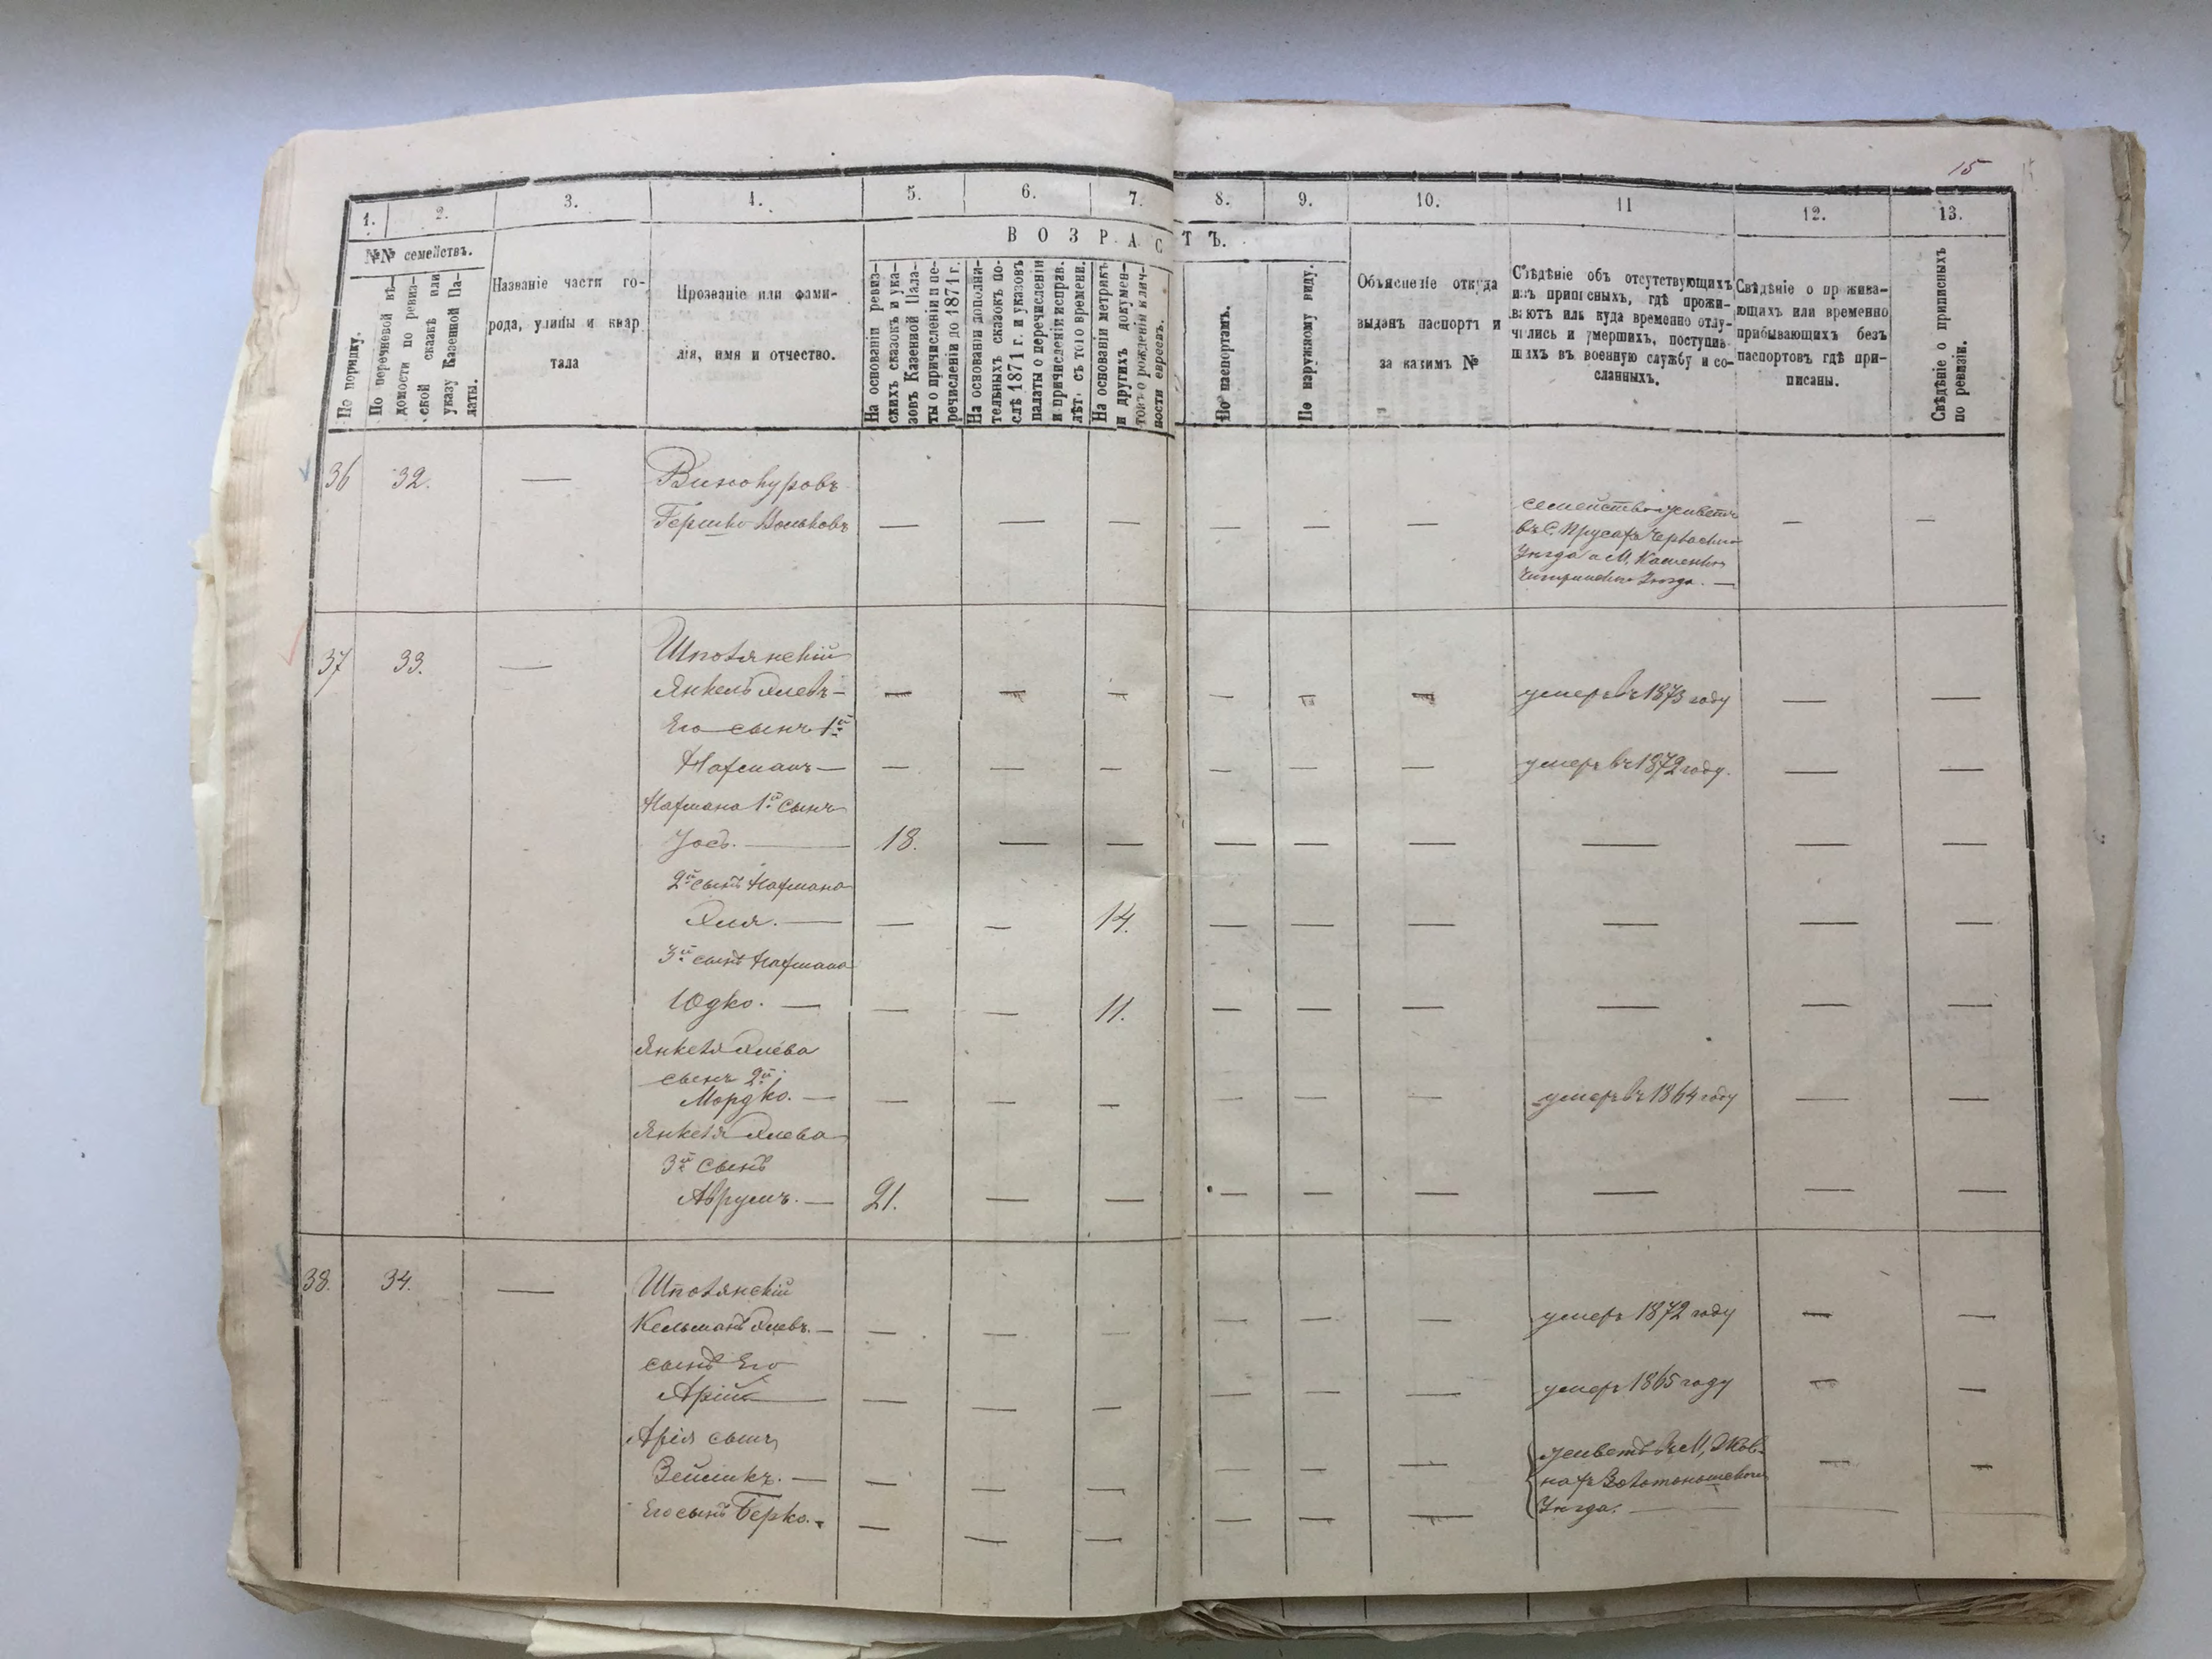 15
1.
2.
3.
4.
5.
6.
7.
8.
9.
10.
11
12.
13.
№№ семействъ.
В О З Р А С Т Ъ.
По порядку.
По перечневой вѣ-
домости по ревиз-
ской сказкѣ или
указу Казенной Па-
латы.
Названіе части го-
рода, улицы и квар
тала
Прозваніе или фами-
лія, имя и отчество.
На основаніи ревиз-
скихъ сказокъ и ука-
зовъ Казенной Пала-
ты о причисленіи и пе-
речисленіи до 1871 г.
На основаніи дополни-
тельныхъ сказокъ по-
слѣ 1871 г. и указовъ
палаты о перечисленіи
и причисленіи исправ.
лѣт. съ того времени.
На основаніи метрикъ
и другихъ докумен-
товъ о рожденіи и лич-
ности евреевъ.
По паспортамъ.
По наружному виду.
Объясненіе откуда
выданъ паспортъ и
за какимъ №
Свѣдѣніе объ отсутствующихъ
изъ приписныхъ, гдѣ прожи-
ваютъ иль куда временно отлу-
чились и умершихъ, поступив
шихъ въ военную службу и со-
сланныхъ.
Свѣдѣніе о прожива-
ющихъ или временно
прибывающихъ безъ
паспортовъ гдѣ при-
писаны.
Свѣдѣніе о приписныхъ
по ревизіи.
36 32. — Винокуровъ
Гершко Вольковъ — — — — — — — —
семейство живетъ
въ С. Прусахъ Черкасскаго
Уѣзда и М. Каменки
Чигиринскаго Уѣзда. —
37 33. — Шполянскій
Янкель Элевъ — — — — — — — умеръ въ 1873 году — —
Его сынъ 1й
Нахманъ — — — — — — — умеръ въ 1872 году. — —
Нахмана 1й сынъ
Іосъ. — 18. — — — — — — — —
2й сынъ Нахмана
Эля. — — — 14. — — — — — —
3й сынъ Нахмана
Юдко. — — — 11. — — — — — —
Янкеля Элева
сынъ 2й
Мордко. — — — — — — — умеръ въ 1864 году — —
Янкеля Элева
3й сынъ
Аврумъ. — 21. — — — — — — — —
38. 34. — Шполянскій
Кельманъ Элевъ. — — — — — — — умеръ 1872 году — —
сынъ Его
Арій — — — — — — — умеръ 1865 году — —
Арія сынъ
Зейликъ. — — — — — — —
Его сынъ Берко. — — — — — — —
живетъ въ М,
нахъ Золотоношскаго
Уѣзда. —